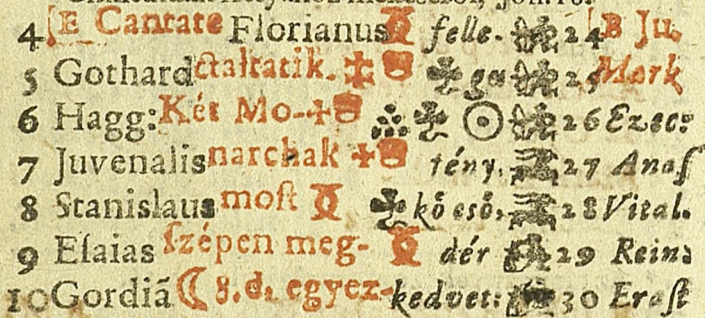 4 [E Cantate Florianus felle. 24 [B Ju.
5 Gothard ctaltatik. ga 25 Mark
6 Hagg: Két Mo- 26 Ezec:
7 Juvenalis narchak tény, 27 Anaſ
8 Stanislaus moſt kő eső, 28 Vital.
9 Eſaias ſzépen meg- dér 29 Rein:
10 Gordiā 8. d. egyez- kedvet: 30 Eraſt